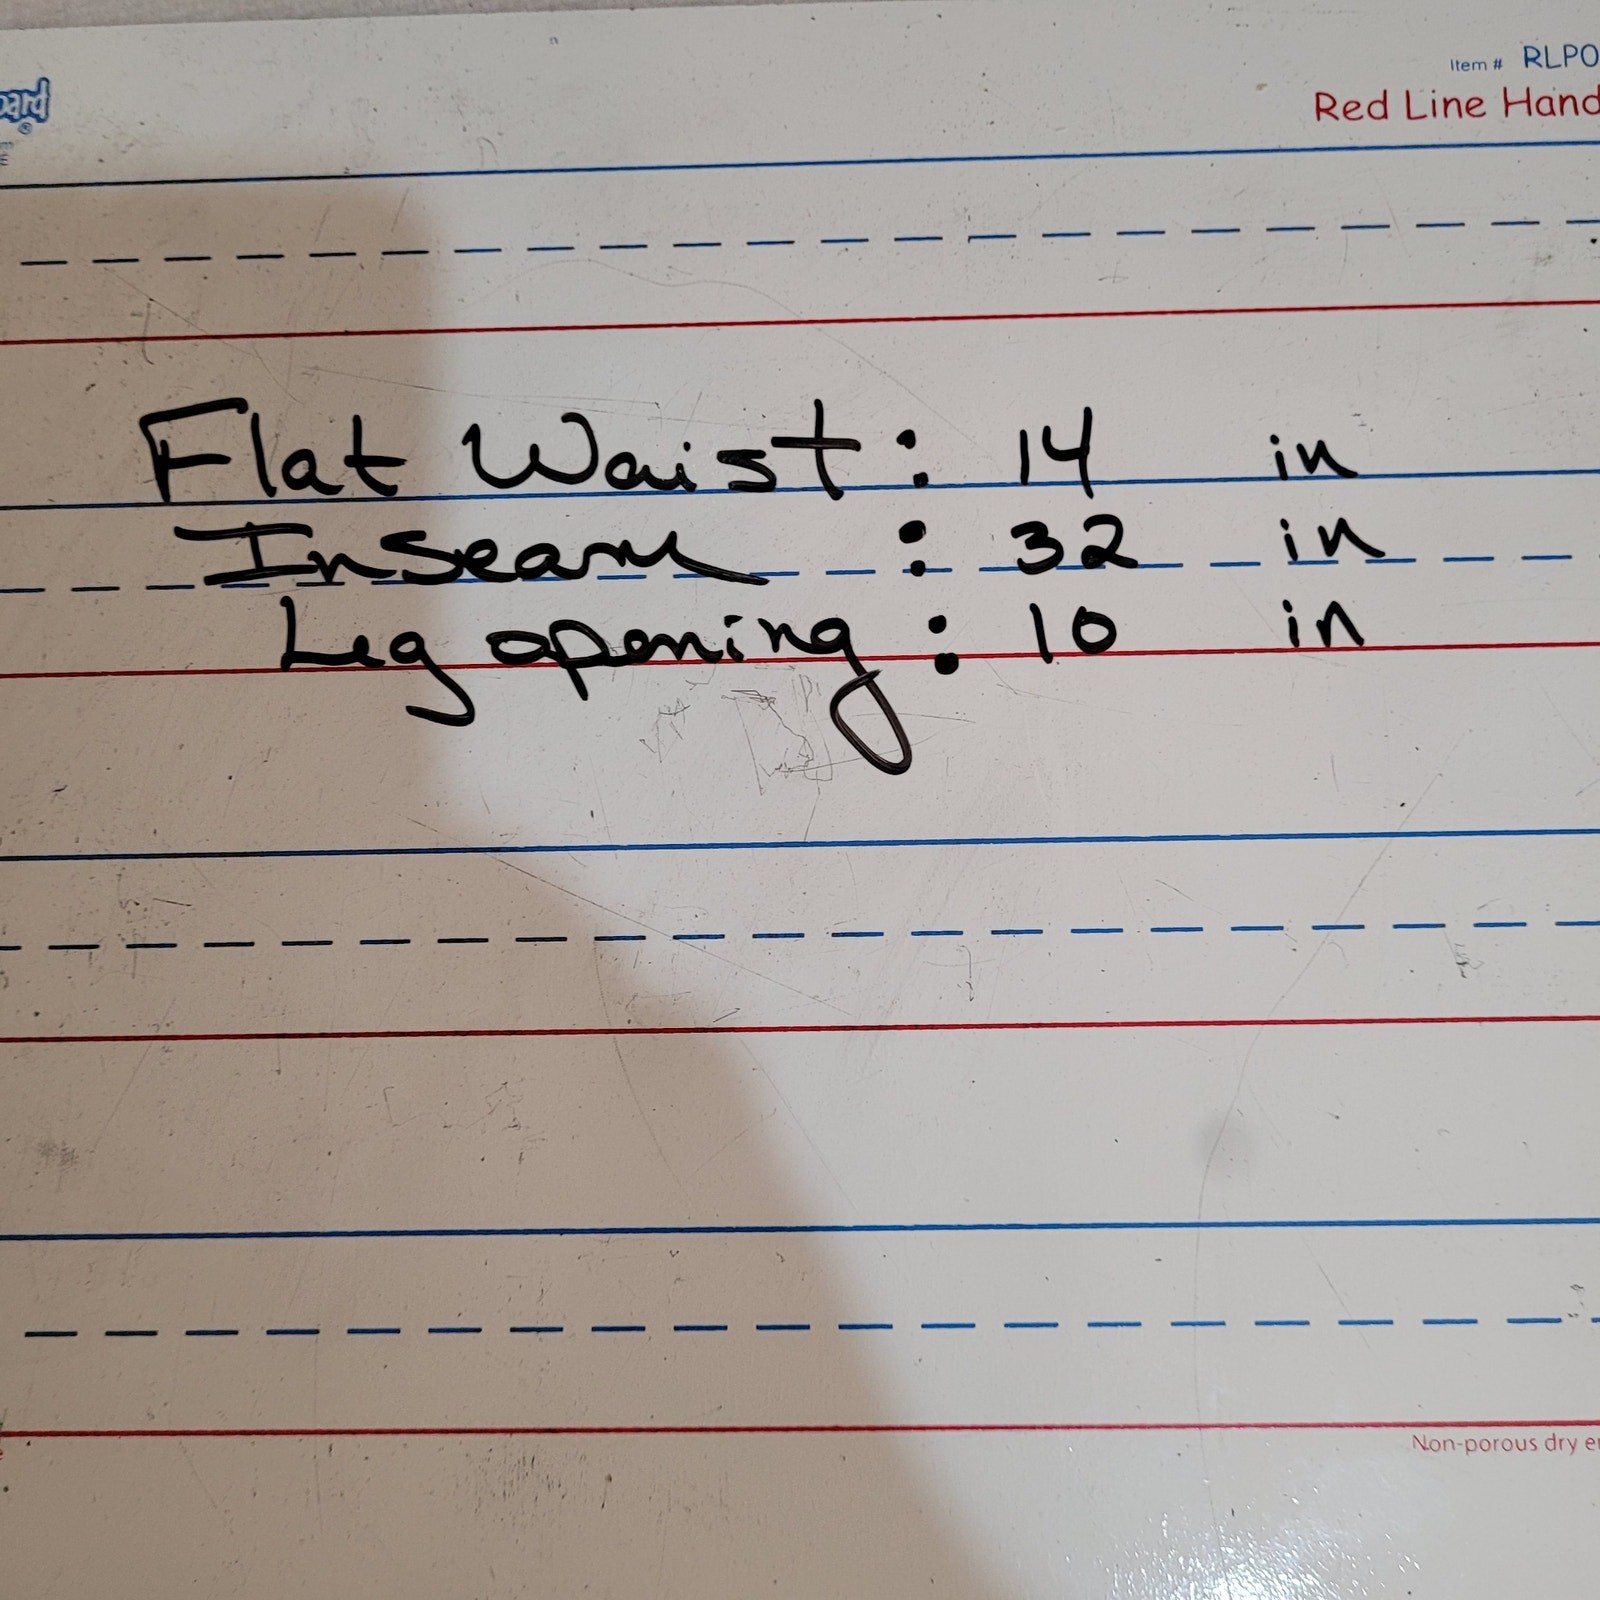 Item # RLPO
Red Line Hand
Flat Waist : 14 in
Inseam : 32 in
Leg opening : 10 in
Non-porous dry